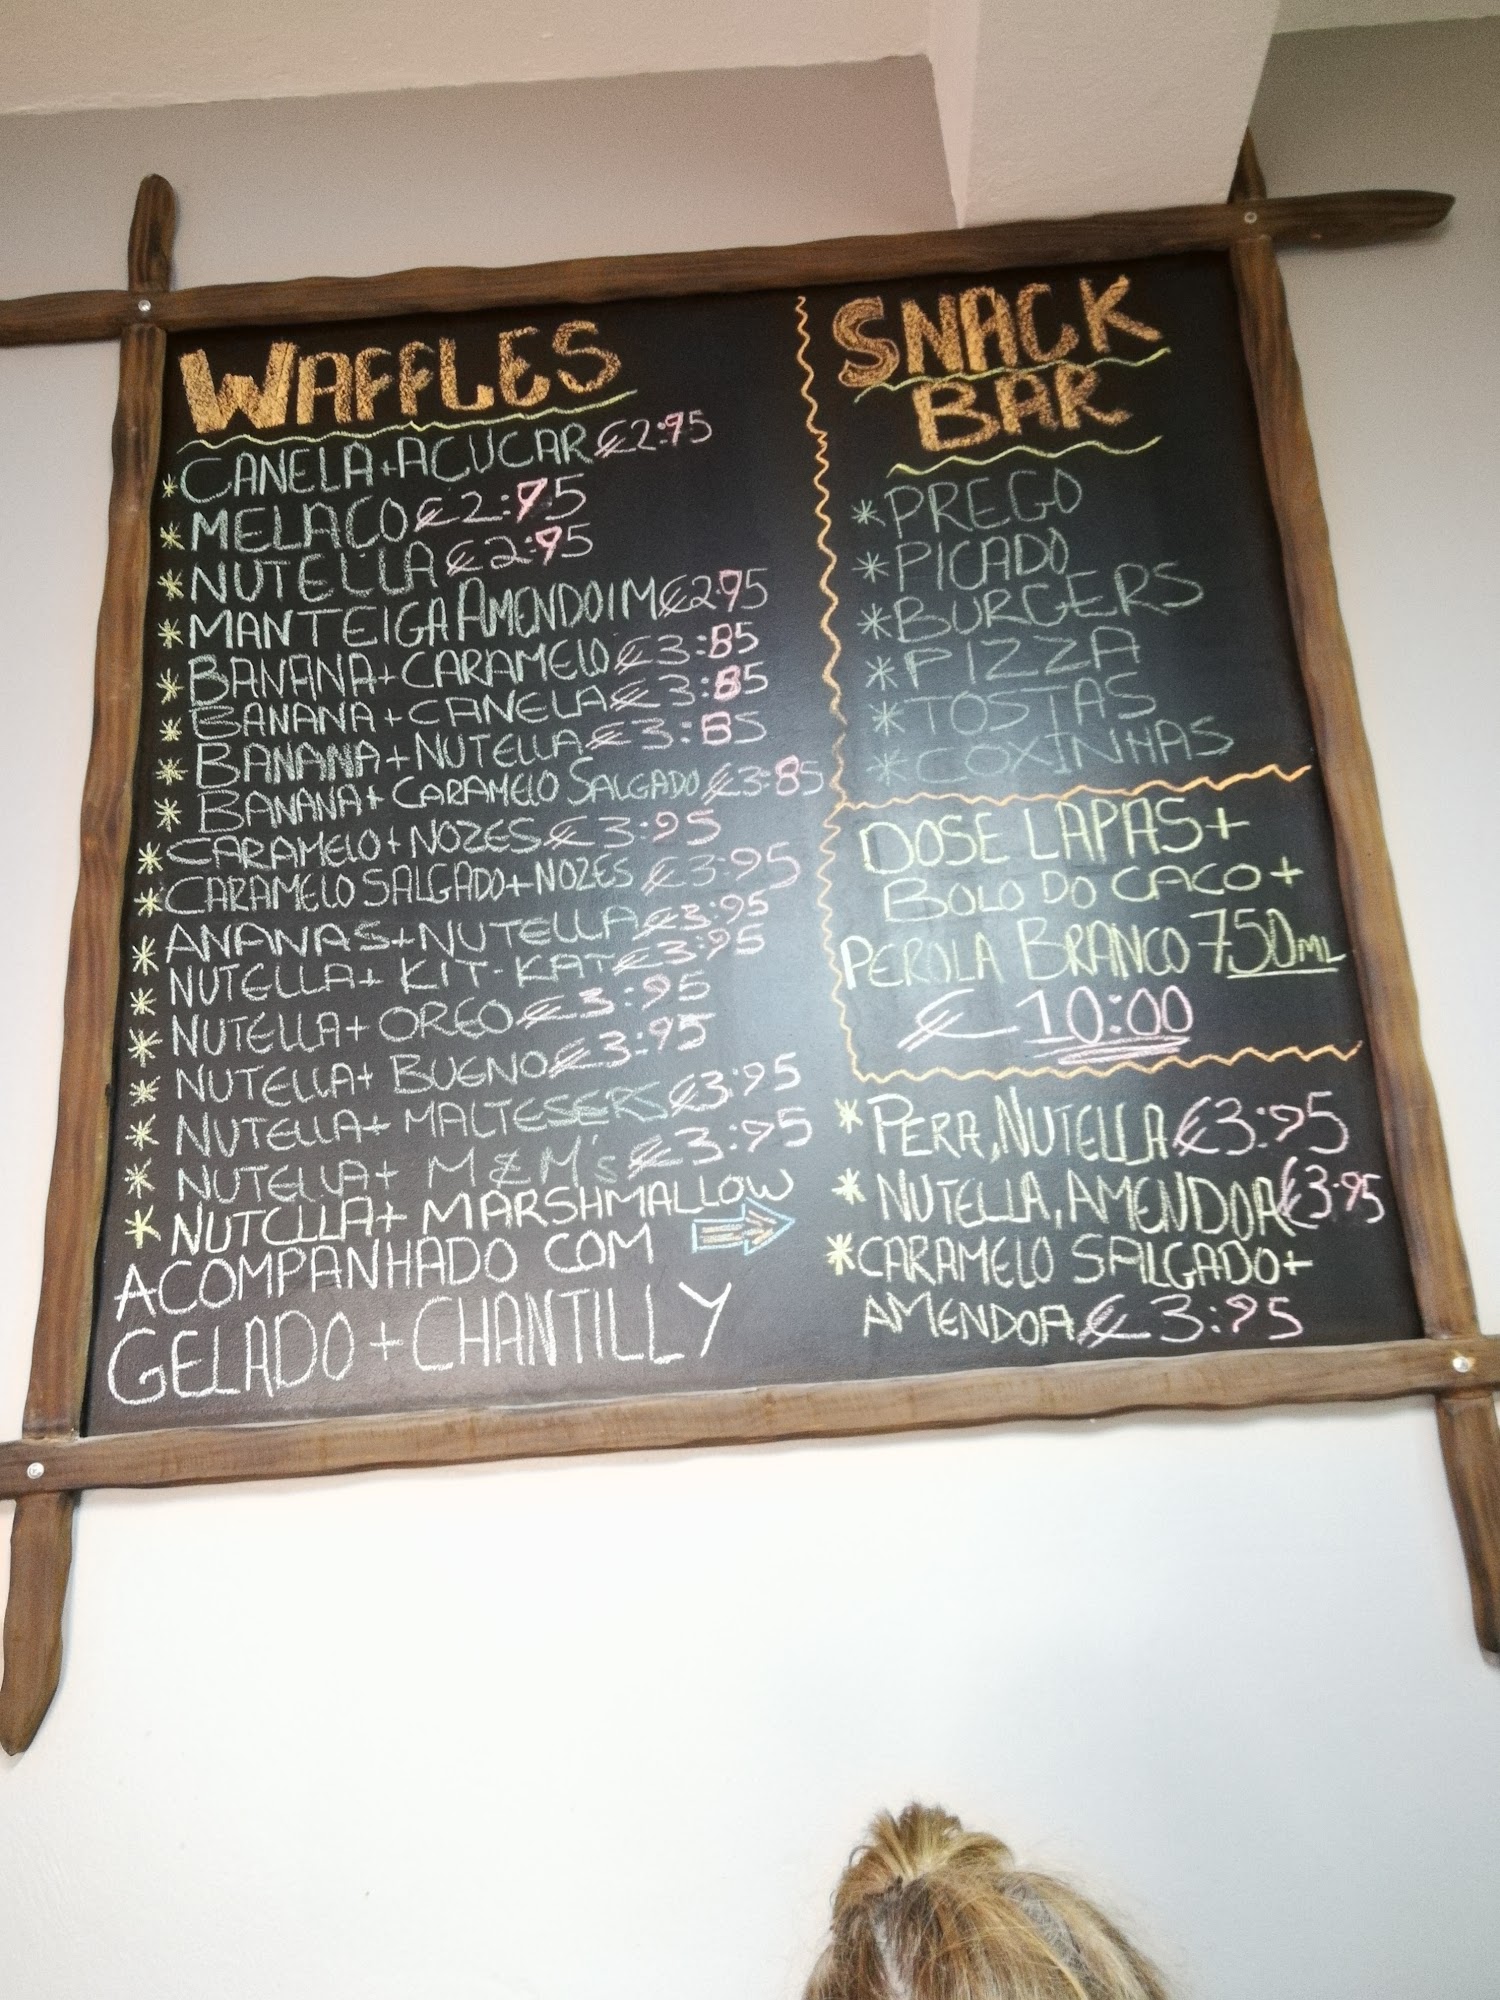 WAFFLES
* CANELA+ACUCAR €2:95
* MELACO €2:95
* NUTELLA €2:95
* MANTEIGA AMENDOIM €2:95
* BANANA+CARAMELO €3:85
* BANANA+CANELA €3:85
* BANANA+NUTELLA €3:85
* BANANA+CARAMELO SALGADO €3:85
* CARAMELO+NOZES €3:95
* CARAMELO SALGADO+NOZES €3:95
* ANANAS+NUTELLA €3:95
* NUTELLA+ KIT-KAT €3:95
* NUTELLA+ OREO €3:95
* NUTELLA+ BUENO €3:95
* NUTELLA+ MALTESERS €3:95
* NUTELLA+ M&M's €3:95
* NUTELLA+ MARSHMALLOW
ACOMPANHADO COM
GELADO+CHANTILLY
SNACK
BAR
* PREGO
* PICADO
* BURGERS
* PIZZA
* TOSTAS
* COXINHAS
DOSE LAPAS+
BOLO DO CACO+
PEROLA BRANCO 750ML
€ 10:00
* PERA, NUTELLA €3:95
* NUTELLA, AMENDOA €3:95
* CARAMELO SALGADO+
AMENDOA €3:95